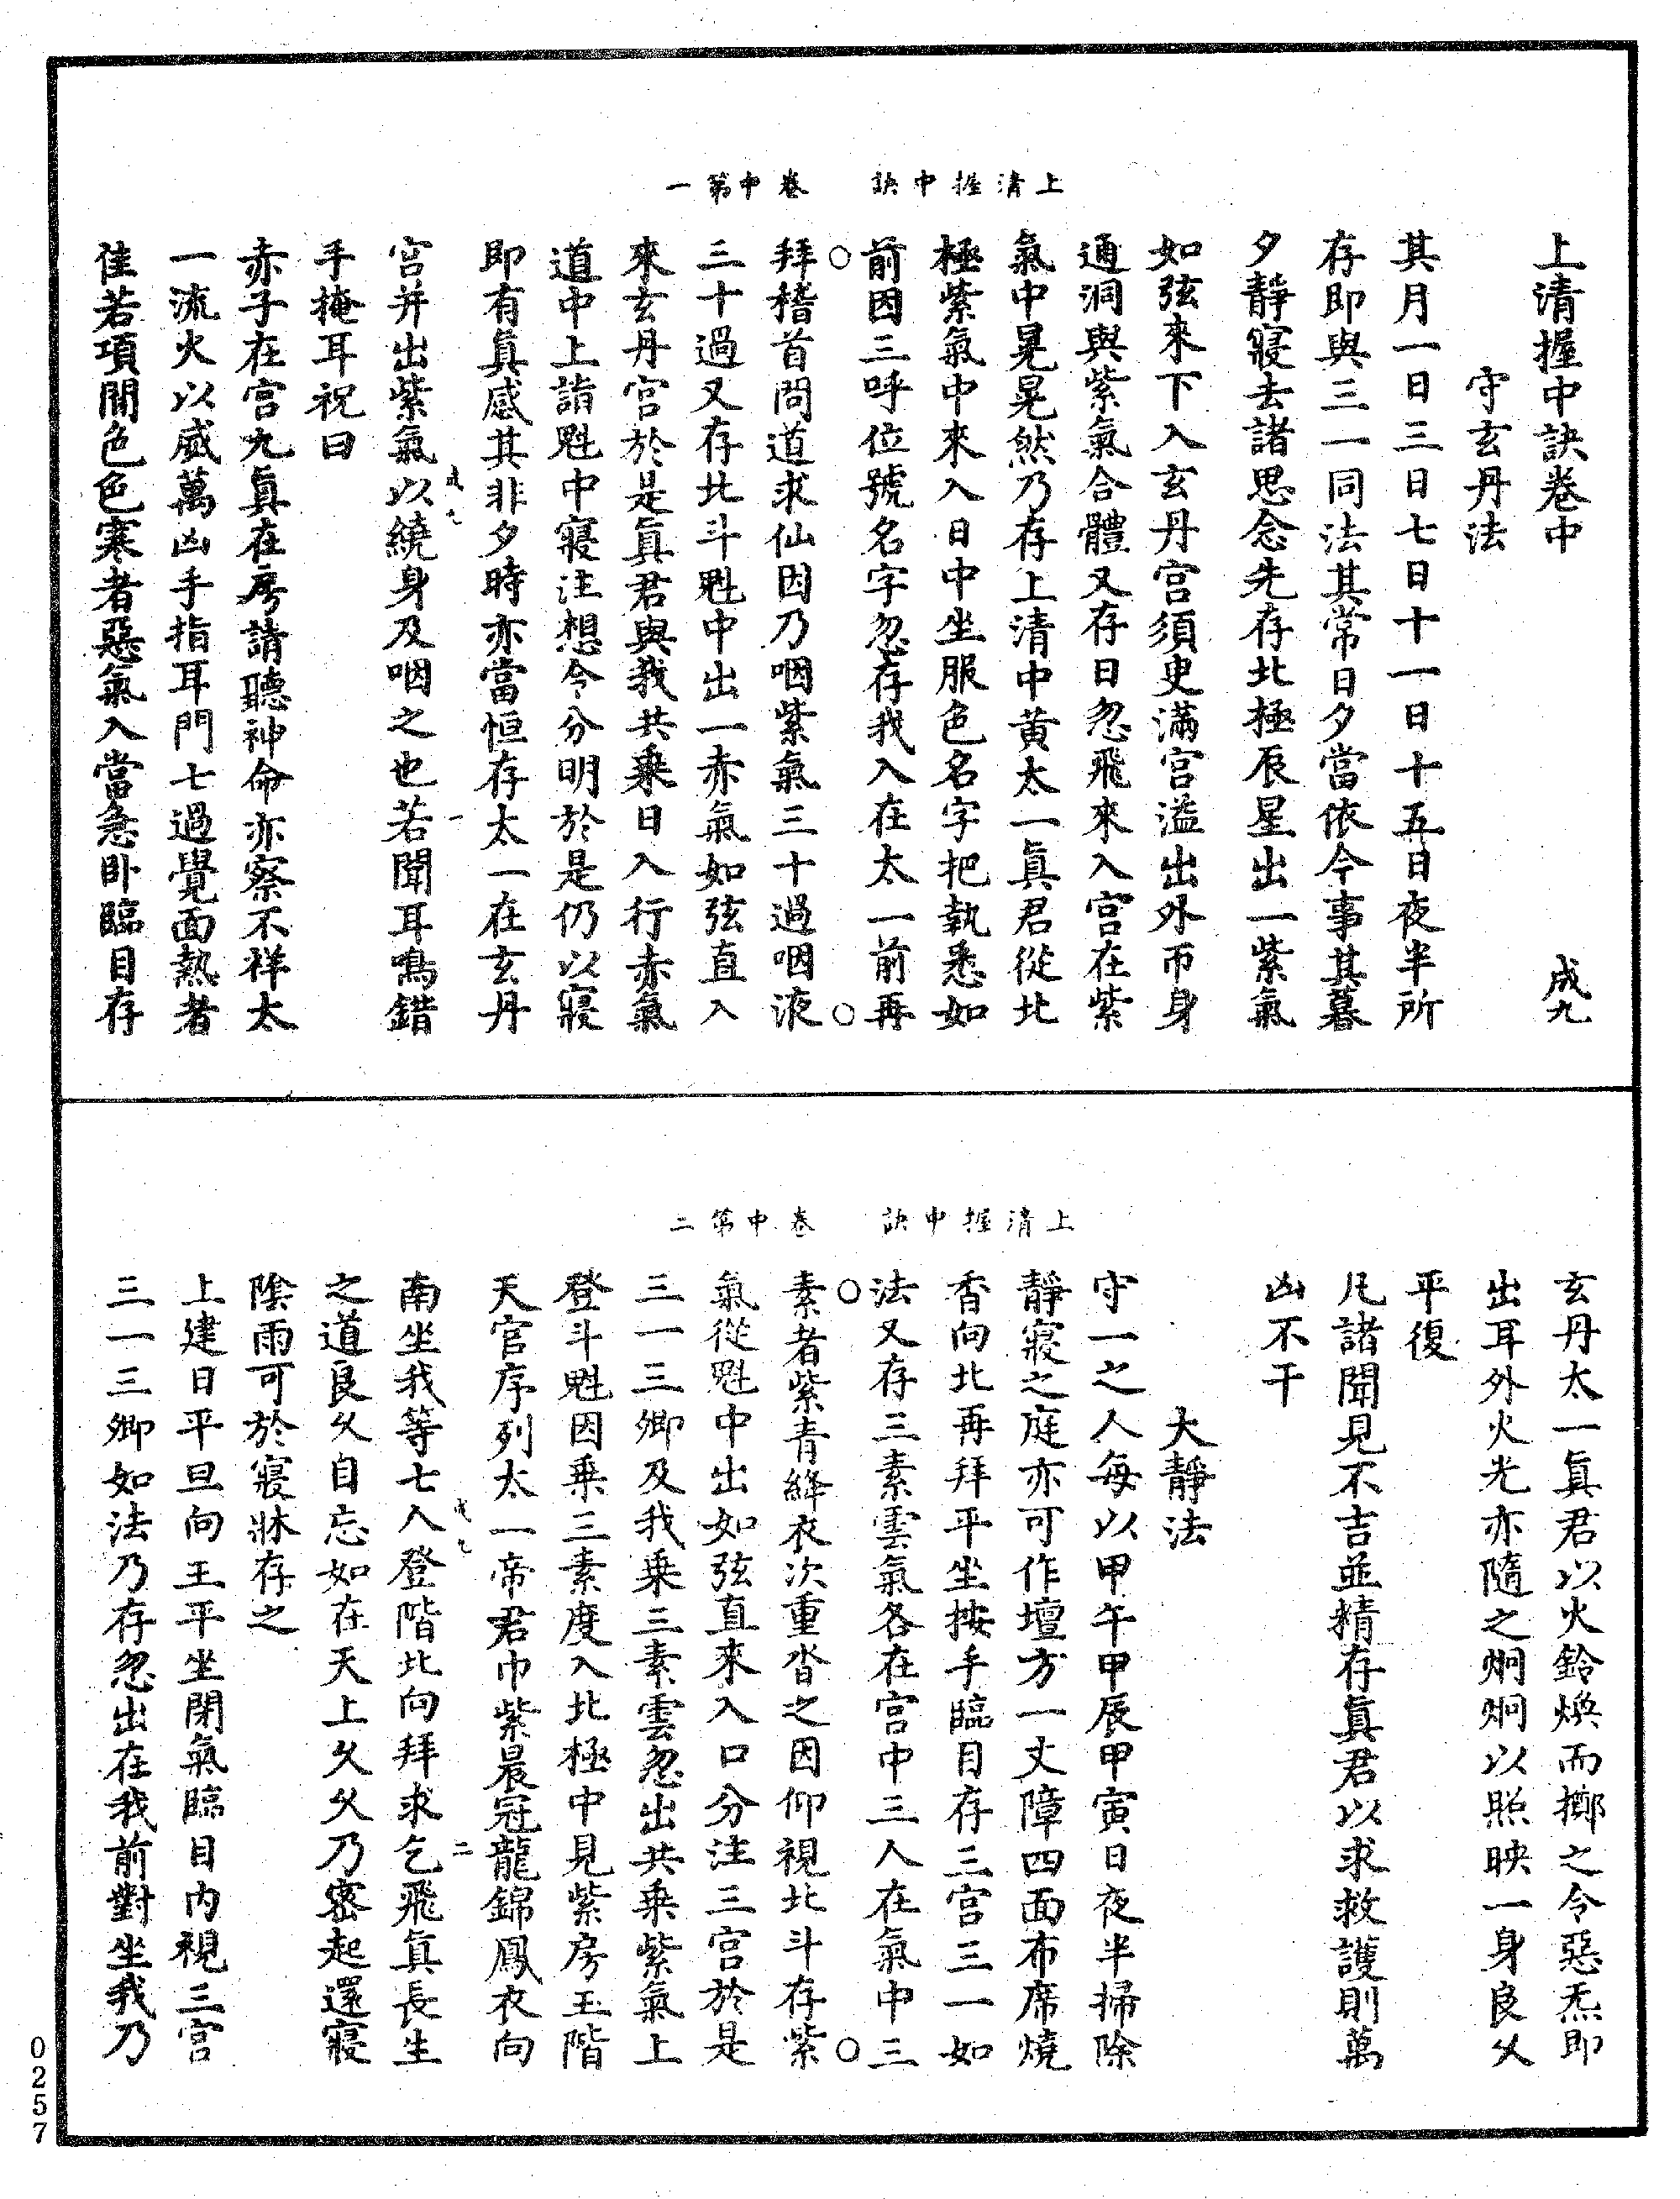 上清握中訣　卷中第一
上清握中訣卷中　成九
守玄丹法
其月一日三日七日十一日十五日夜半所
存即與三一同法其常日夕當依今事其暮
夕靜寢去諸思念先存北極辰星出一紫氣
如弦來下入玄丹宮須臾滿宮溢出外帀身
通洞與紫氣合體又存日忽飛來入宮在紫
氣中晃晃然乃存上清中黃太一眞君從北
極紫氣中來入日中坐服色名字把執悉如
前因三呼位號名字忽存我入在太一前再
拜稽首問道求仙因乃咽紫氣三十過咽液
三十過又存北斗魁中出一赤氣如弦直入
來玄丹宮於是眞君與我共乗日入行赤氣
道中上詣魁中寢注想令分明於是仍以寢
即有眞感其非夕時亦當恒存太一在玄丹
成九　一
宮并出紫氣以繞身及咽之也若聞耳鳴錯
手掩耳祝曰
赤子在宮九眞在房請聽神命亦察不祥太
一流火以威萬凶手指耳門七過覺面熱者
佳若項間色色寒者惡氣入當急卧臨目存
上清握中訣　卷中第二
玄丹太一眞君以火鈴煥而擲之令惡炁即
出耳外火光亦隨之烱烱以照映一身良久
平復
凡諸聞見不吉並精存眞君以求救護則萬
凶不干
大靜法
守一之人每以甲午甲辰甲寅日夜半掃除
靜寢之庭亦可作壇方一丈障四面布席燒
香向北再拜平坐按手臨目存三宮三一如
法又存三素雲氣各在宮中三人在氣中三
素者紫青絳衣次重沓之因仰視北斗存紫
氣從魁中出如弦直來入口分注三宮於是
三一三卿及我乗三素雲忽出共乗紫氣上
登斗魁因乗三素度入北極中見紫房玉階
天官序列太一帝君巾紫晨冠龍錦鳳衣向
成九　二
南坐我等七人登階北向拜求乞飛眞長生
之道良久自忘如在天上久久乃密起還寢
陰雨可於寢牀存之
上建日平旦向王平坐閉氣臨目内視三宮
三一三卿如法乃存忽出在我前對坐我乃
0257